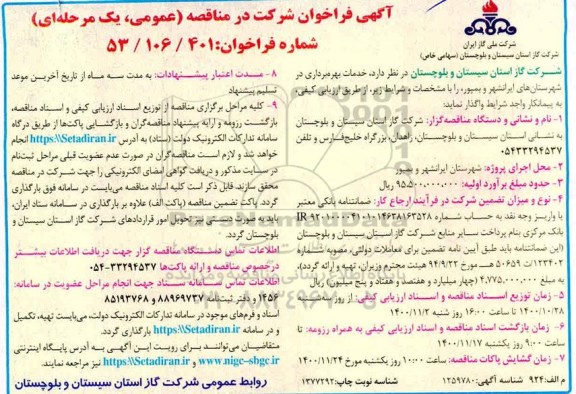 آگهی فراخوان شرکت در مناقصه (عمومی، یک مرحله‌ای)
شماره فراخوان: ۴۰۱ / ۱۰۶ / ۵۳
شرکت ملی گاز ایران
شرکت گاز استان سیستان و بلوچستان (سهامی خاص)
شرکت گاز استان سیستان و بلوچستان در نظر دارد، خدمات بهره‌برداری در
شهرستان‌های ایرانشهر و بمپور، را با مشخصات و شرایط زیر، از طریق ارزیابی کیفی،
به پیمانکار واجد شرایط واگذار نماید:
۱- نام و نشانی و دستگاه مناقصه‌گزار: شرکت گاز استان سیستان و بلوچستان
به نشانی استان سیستان و بلوچستان، زاهدان، بزرگراه خلیج‌فارس و تلفن
۰۵۴۳۳۲۹۴۵۳۷
۲- محل اجرای پروژه: شهرستان ایرانشهر و بمپور
۳- حدود مبلغ برآورد اولیه: ۹۵.۵۰۰.۰۰۰.۰۰۰ ریال
۴- نوع و میزان تضمین شرکت در فرآیند ارجاع کار: ضمانتنامه بانکی معتبر
یا واریز وجه نقد به حساب شماره
بانک مرکزی بنام پرداخت سایر منابع شرکت گاز استان سیستان و بلوچستان
(این ضمانتنامه باید طبق آیین نامه تضمین برای معاملات دولتی، مصوبه شماره
۱۲۳۴۰۲/ت ۵۰۶۵۹ هـ مورخ ۹۴/۹/۲۲ هیئت محترم وزیران، تهیه و ارائه گردد)،
به مبلغ ۴,۷۷۵,۰۰۰,۰۰۰ (چهار میلیارد و هفتصد و هفتاد و پنج میلیون) ریال
۵- زمان توزیع اسناد مناقصه و اسناد ارزیابی کیفی: از روز
۱۴۰۰/۱۰/۲۸ تا ساعت ۱۶:۰۰ روز شنبه ۱۴۰۰/۱۱/۲
۶- زمان بازگشت اسناد مناقصه و اسناد ارزیابی کیفی به همراه رزومه: تا
ساعت ۹:۰۰ روز یکشنبه ۱۴۰۰/۱۱/۱۷
۷- زمان گشایش پاکات مناقصه: ساعت ۱۰:۰۰ روز یکشنبه مورخ ۱۴۰۰/۱۱/۲۴
م الف: ۹۲۴ شناسه آگهی: ۱۲۵۹۷۸۰ شناسه نوبت چاپ: ۱۳۷۷۲۹۲
۸- مدت اعتبار پیشنهادات: به مدت سه ماه از تاریخ آخرین موعد
تسلیم پیشنهاد
۹- کلیه مراحل برگزاری مناقصه از توزیع اسناد ارزیابی کیفی و اسناد مناقصه،
بازگشت رزومه و ارایه پیشنهاد مناقصه‌گران و بازگشایی پاکت‌ها از طریق درگاه
سامانه تدارکات الکترونیک دولت (ستاد) به آدرس https:\\Setadiran.ir انجام
خواهد شد و لازم است مناقصه‌گران در صورت عدم عضویت قبلی مراحل ثبت‌نام
در سایت مذکور و دریافت گواهی امضای الکترونیکی را جهت شرکت در مناقصه
محقق سازند. قابل ذکر است کلیه اسناد مناقصه می‌بایست در سامانه فوق بارگذاری
گردد. پاکت تضمین مناقصه (پاکت الف) علاوه بر بارگذاری در سامانه ستاد ایران،
باید به صورت دستی نیز تحویل امور قراردادهای شرکت گاز استان سیستان و
بلوچستان گردد.
اطلاعات تماس دستگاه مناقصه گزار جهت دریافت اطلاعات بیشتر
درخصوص مناقصه و ارائه پاکت‌ها ۳۳۲۹۴۵۳۷-۰۵۴
اطلاعات تماس سامانه ستاد جهت انجام مراحل عضویت در سامانه:
۱۴۵۶ و دفتر ثبت‌نام ۸۸۹۶۹۷۳۷ و ۸۵۱۹۳۷۶۸
اسناد و فرم‌های موجود در سامانه تدارکات الکترونیک دولت، می‌بایست تهیه، تکمیل
و در سامانه https:\\Setadiran.ir بارگذاری گردد.
متقاضیان می‌توانند برای رویت این آگهی به آدرس پایگاه اینترنتی
www.nigc-sbgc.ir و https:\\Setadiran.ir نیز مراجعه نمایند.
روابط عمومی شرکت گاز استان سیستان و بلوچستان